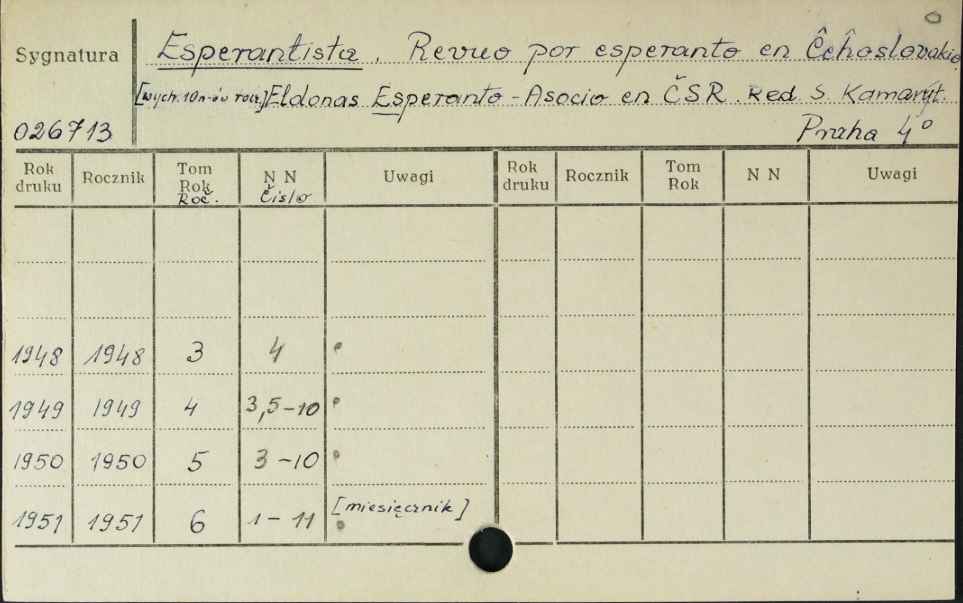 Sygnatura
Esperantista. Revuo por esperanto en Ĉeĥoslovakio
[wych. 10 n-ów rocz.] Eldonas Esperanto-Asocio en ČSR. Red. S. Kamarýt.
026713 Praha 4°
Rok druku Rocznik Tom Rok Roč. N N Čislo Uwagi Rok druku Rocznik Tom Rok N N Uwagi
1948 1948 3 4
1949 1949 4 3,5-10
1950 1950 5 3-10
1951 1951 6 1-11 [miesięcznik]